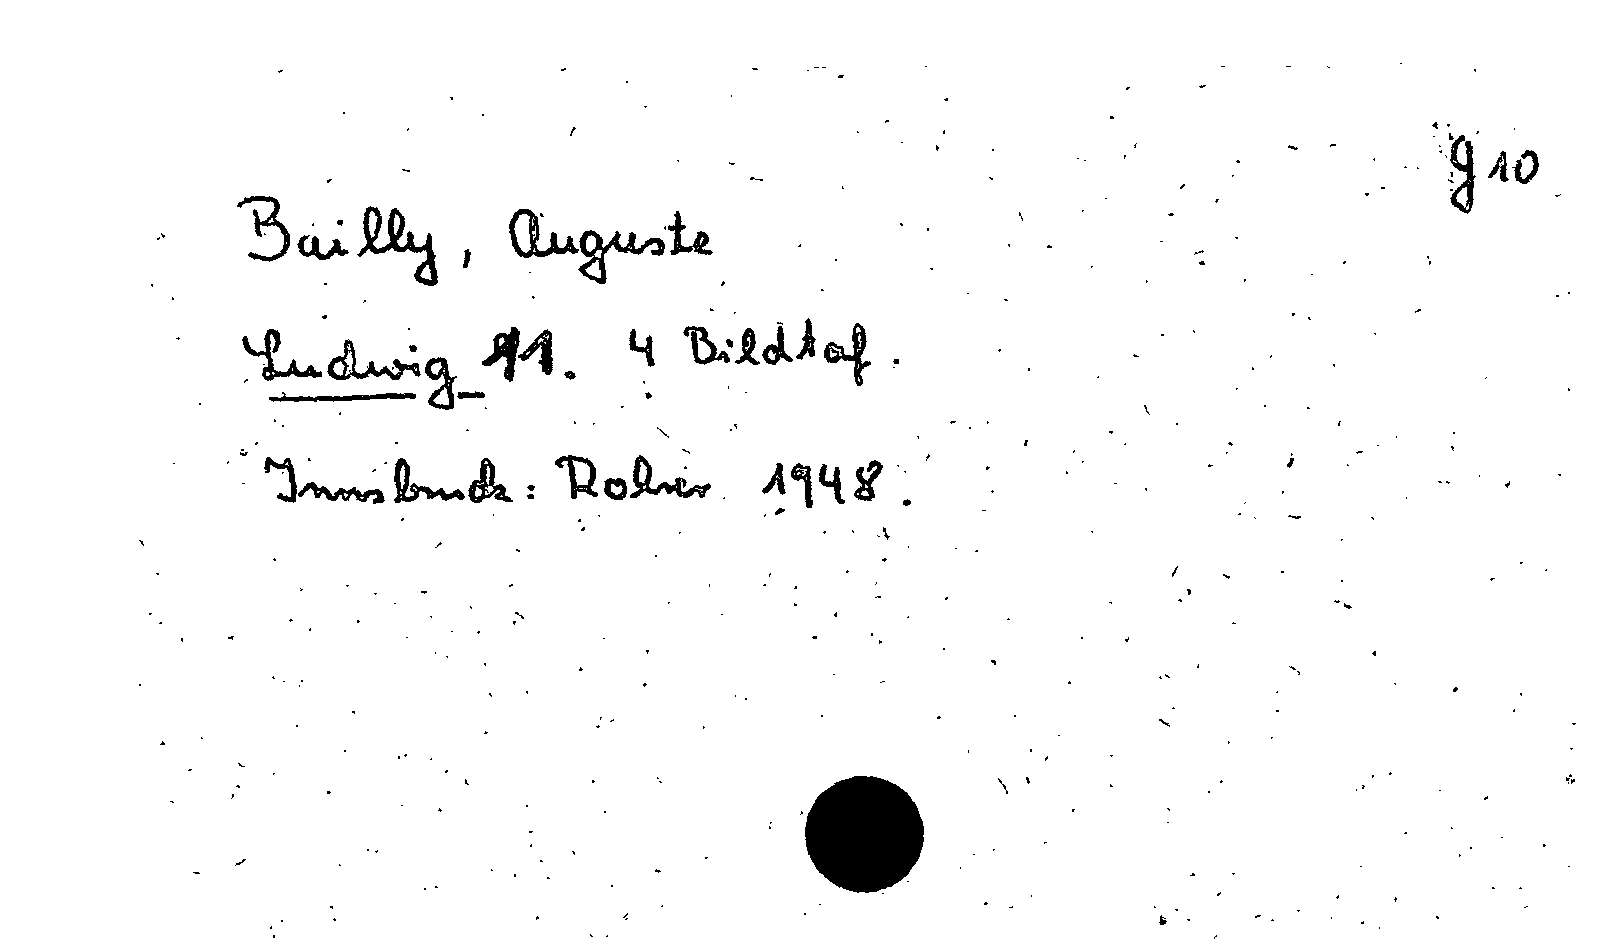 g 10
Bailly, Auguste
Ludwig 11. 4 Bildtaf.
Innsbruck: Rohrer 1948.